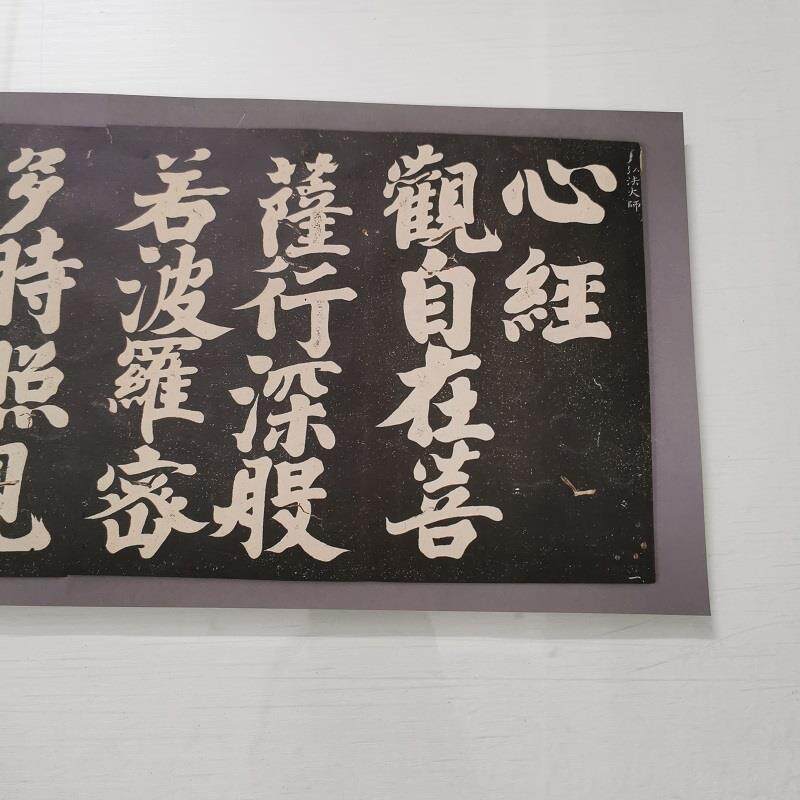 弘法大師
心經
觀自在菩
薩行深般
若波羅密
多時照見
一